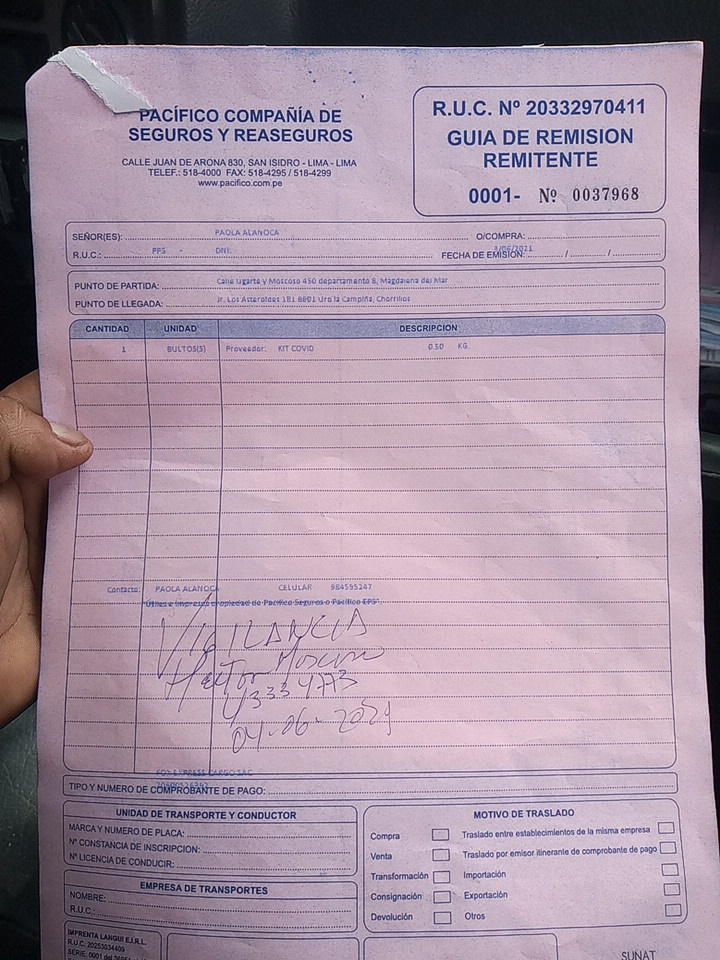 PACÍFICO COMPAÑÍA DE
SEGUROS Y REASEGUROS
CALLE JUAN DE ARONA 830, SAN ISIDRO - LIMA - LIMA
TELEF.: 518-4000 FAX: 518-4295 / 518-4299
www.pacifico.com.pe
R.U.C. Nº 20332970411
GUIA DE REMISION
REMITENTE
0001- Nº 0037968
SEÑOR(ES): PAOLA ALANOCA O/COMPRA:
R.U.C.: PPS - DNI: FECHA DE EMISIÓN: /06/2021
PUNTO DE PARTIDA: Calle Ugarte y Moscoso 450 departamento 8, Magdalena del Mar
PUNTO DE LLEGADA: Jr. Los Asteroides 181 Urb la Campiña, Chorrillos
CANTIDAD UNIDAD DESCRIPCION
1 BULTOS(S) Proveedor: KIT COVID 0.50 KG
Contacto: PAOLA ALANOCA CELULAR 984595247
"Útiles e impresos propiedad de Pacífico Seguros o Pacífico EPS".
VIGILANCIA
Hector
04-06-2021
FOX EXPRESS CARGO SAC
TIPO Y NUMERO DE COMPROBANTE DE PAGO:
UNIDAD DE TRANSPORTE Y CONDUCTOR
MARCA Y NUMERO DE PLACA:
Nº CONSTANCIA DE INSCRIPCION:
Nº LICENCIA DE CONDUCIR:
EMPRESA DE TRANSPORTES
NOMBRE:
R.U.C.:
MOTIVO DE TRASLADO
Compra Traslado entre establecimientos de la misma empresa
Venta Traslado por emisor itinerante de comprobante de pago
Transformación Importación
Consignación Exportación
Devolución Otros
IMPRENTA LANGUI E.I.R.L.
R.U.C. 20253034409
SERIE: 0001 del
SUNAT